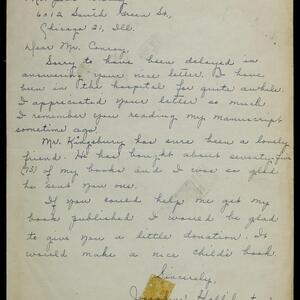 6012 South Green St.,
Chicago 21, Ill.
Dear Mr. Conroy,
Sorry to have been delayed in
answering your nice letter. I have
been in the hospital for quite awhile.
I appreciated your letter so much
I remember you reading my manuscript
sometime ago
Mr. Kingsbury has sure been a lovely
friend. He has bought about seventy-five
(75) of my books and I was so glad
he sent you one.
If you could help me get my
book published I would be glad
to give you a little donation. It
would make a nice child's book.
Sincerely,